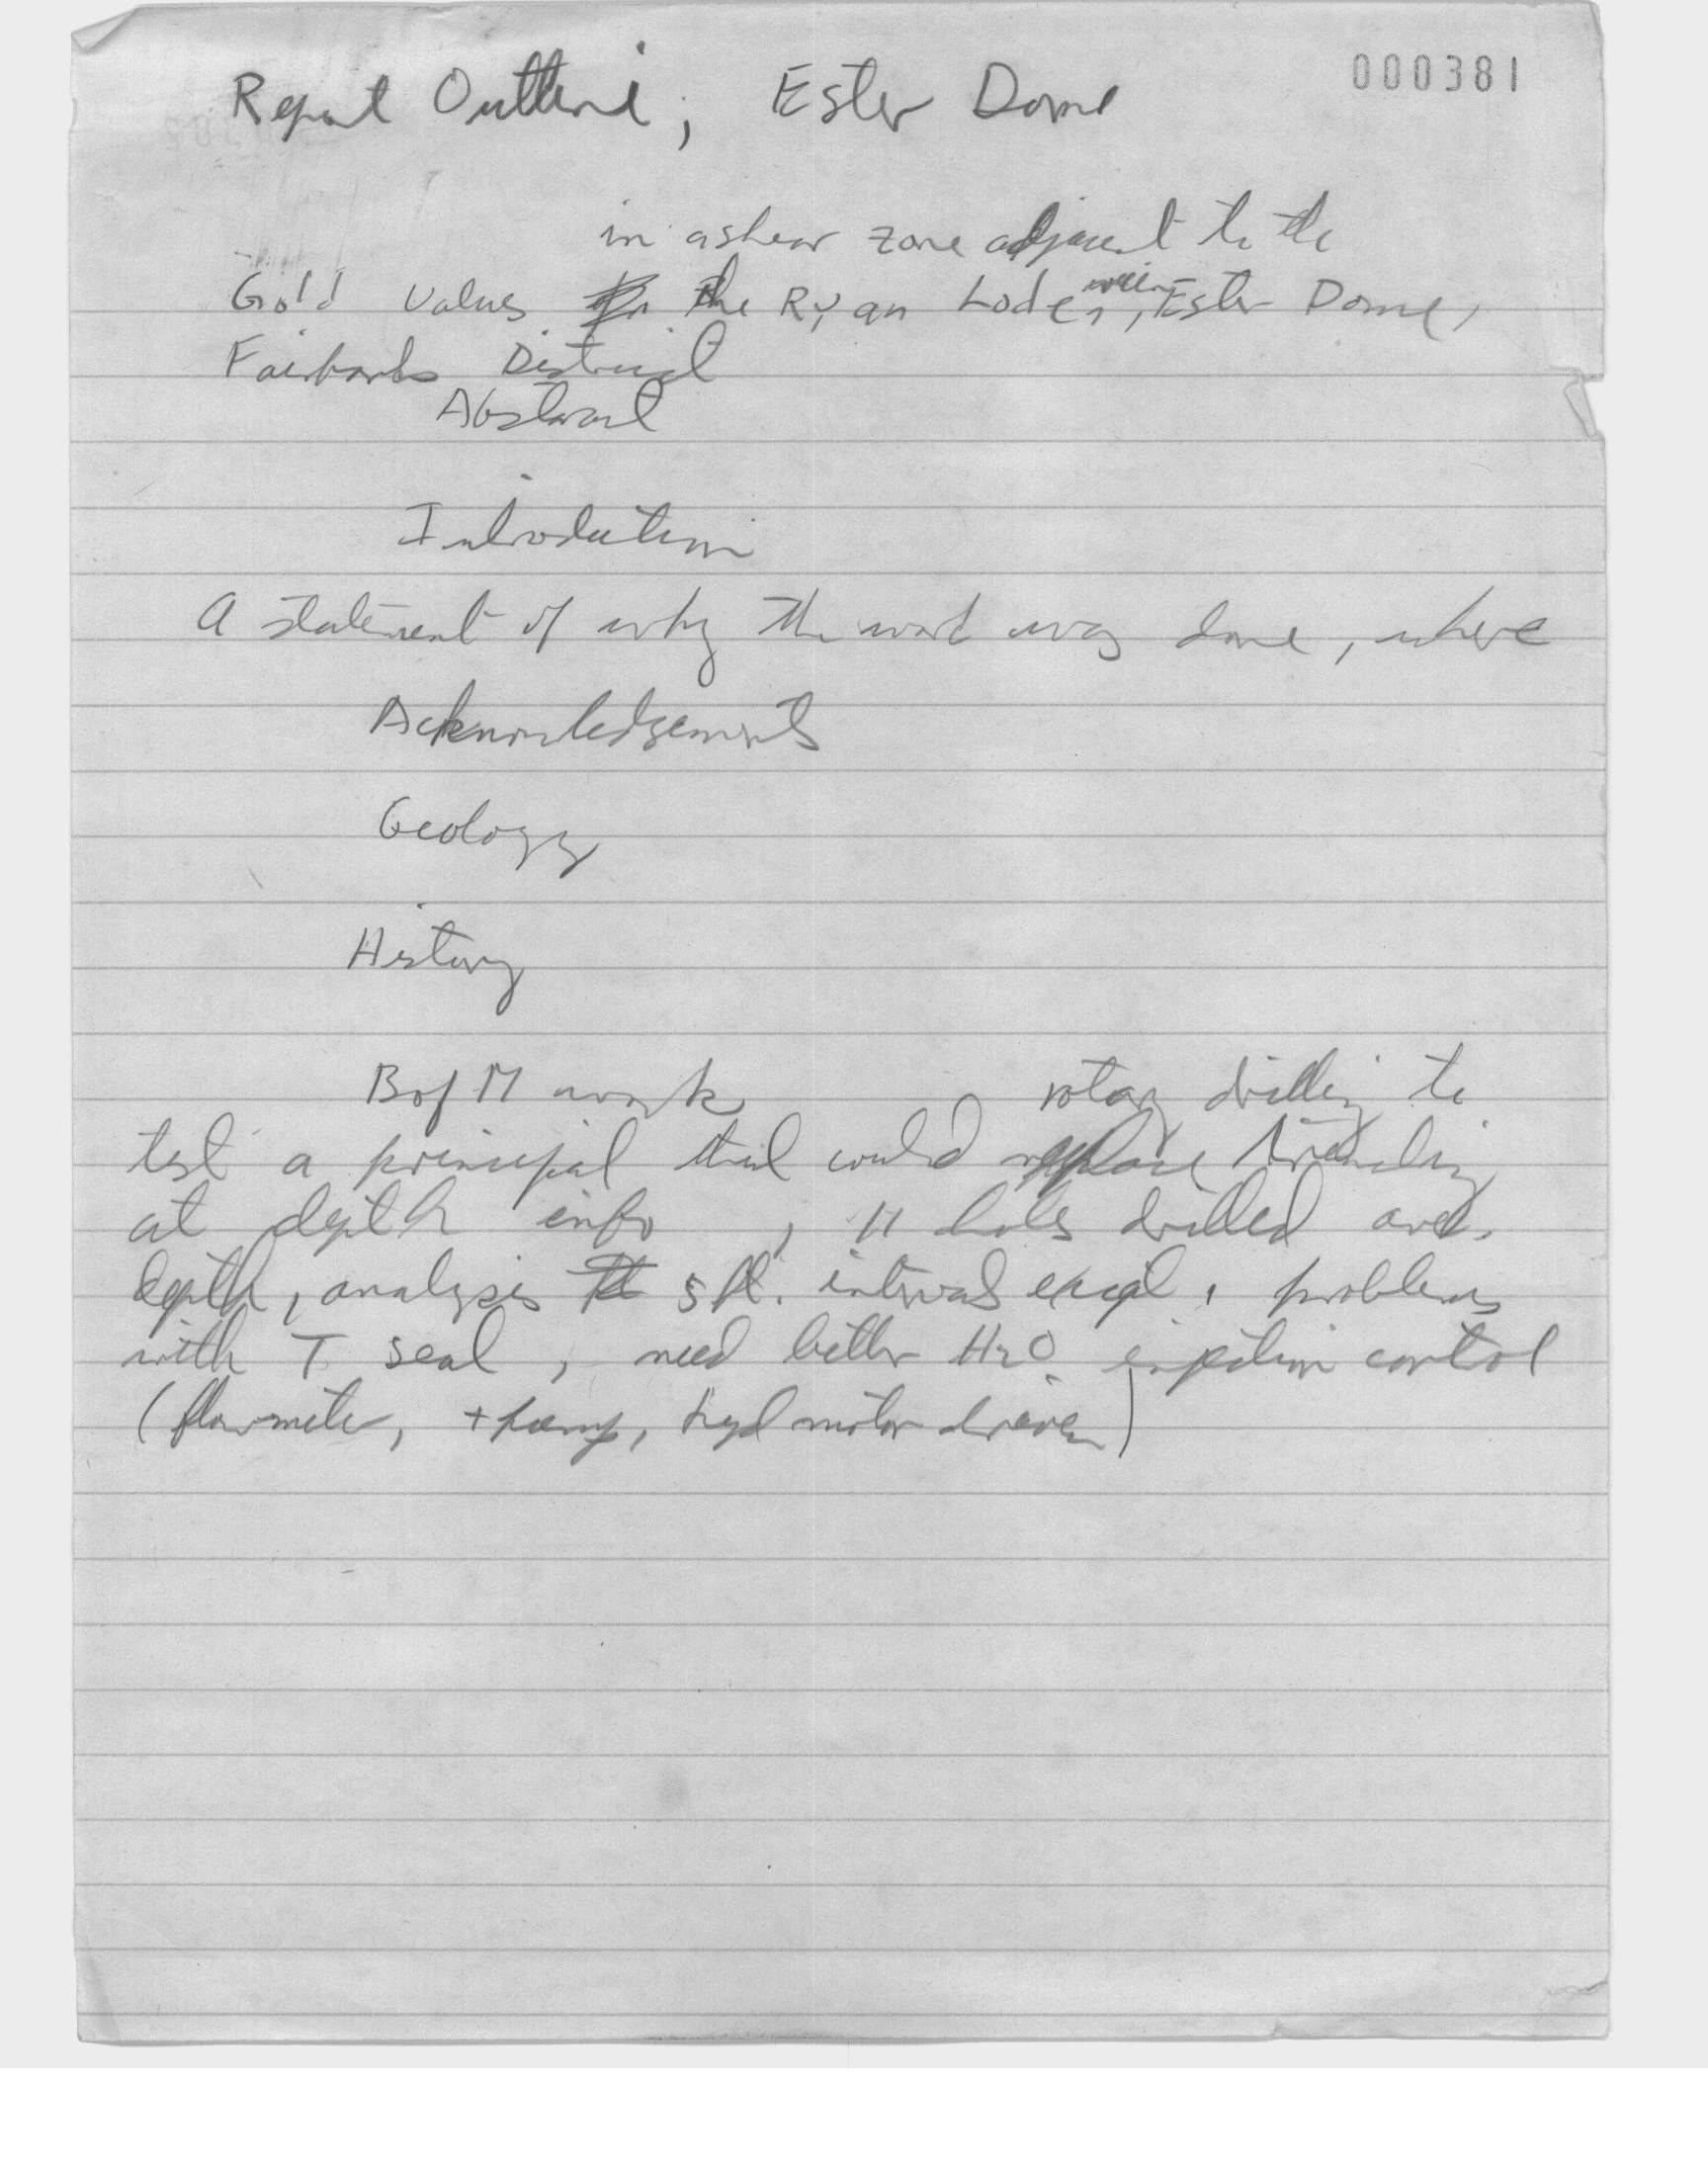 000381
Report Outline, Ester Dome
in a shear zone adjacent to the
Gold Values the Ryan Lode vein, Ester Dome,
Fairbanks District
Abstract
Introduction
A statement of why the work was done, where
Acknowledgements
Geology
History
B of M work rotary drilling to
test a principal that could replace trenching
at depth info, 11 holes drilled
depth, analysis 5 ft. interval except, problems
with T seal, need better H2O injection control
(flowmeter, + pump, hyd motor driven)